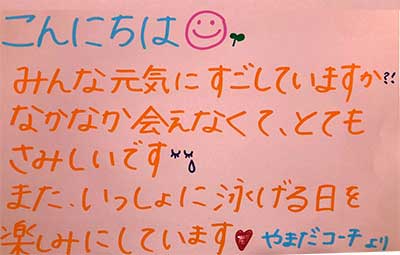 こんにちは
みんな元気にすごしていますか?!
なかなか会えなくて、とても
さみしいです
また、いっしょに泳げる日を
楽しみにしています やまだコーチより